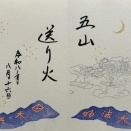 五山
送り火
令和八年
八月十六日
妙法
大